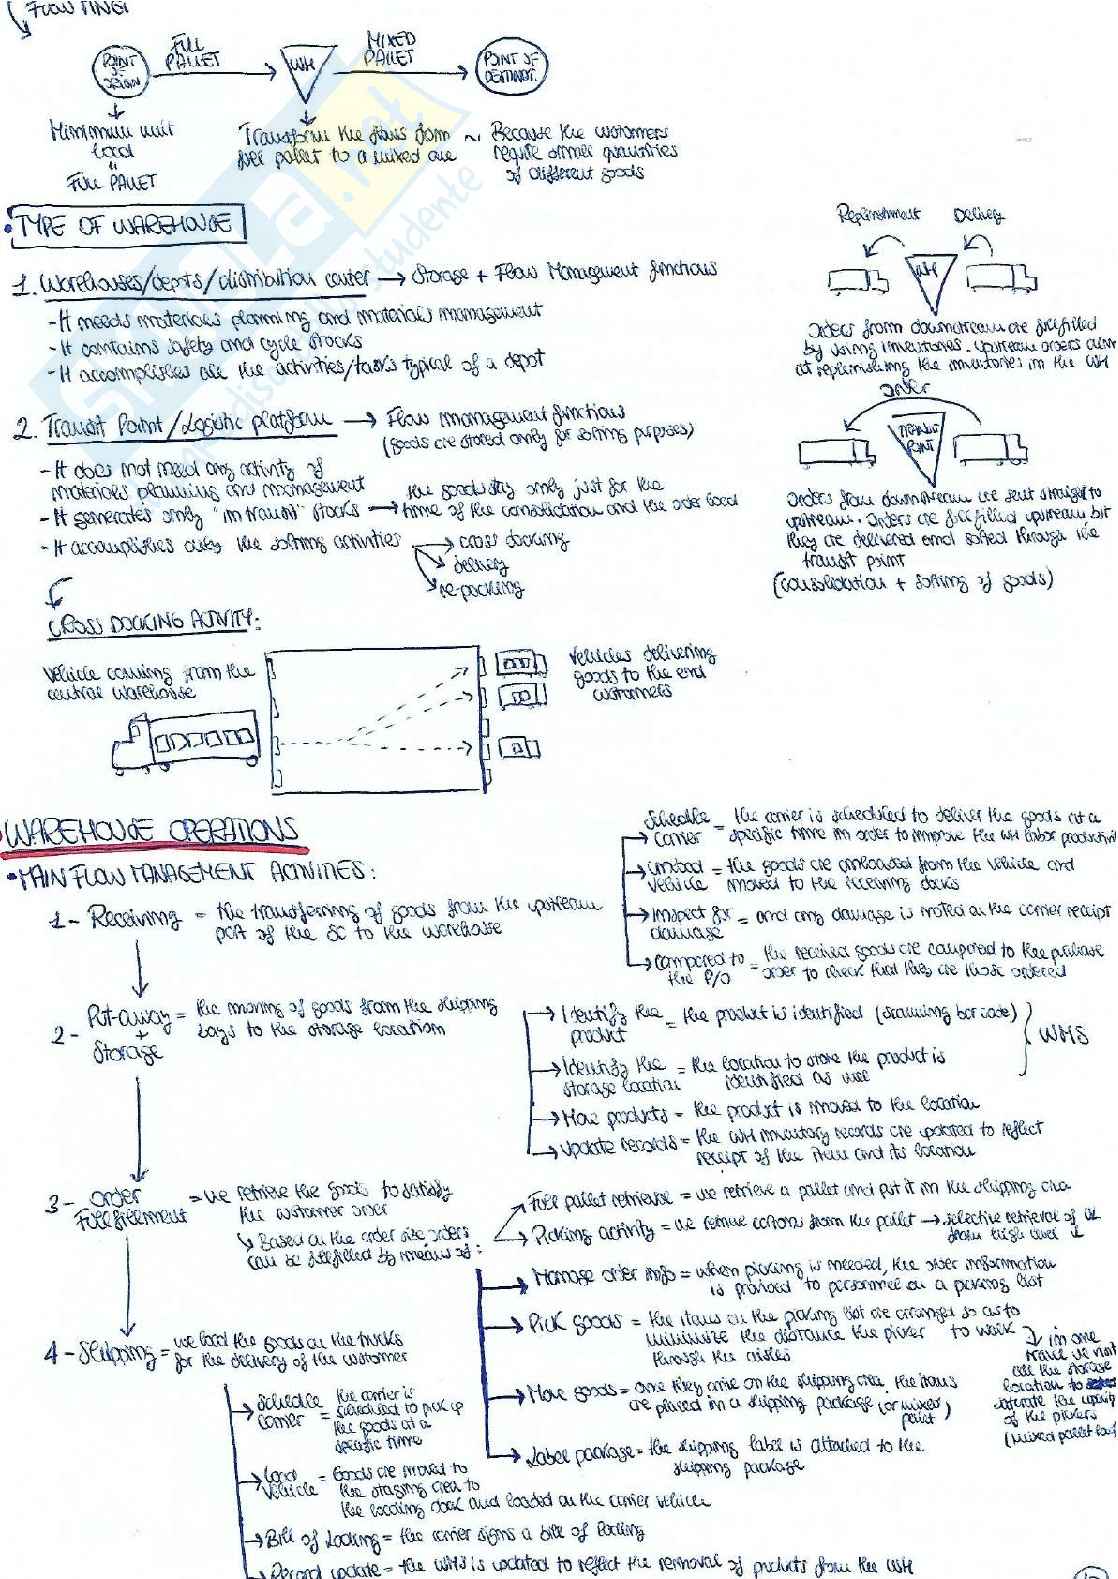 FULL
PALLET
MIXED
PALLET
POINT
OF
ORIGIN
WH
POINT OF
DESTINAT.
Minimum unit
load
"
FULL PALLET
Transform the flows from
full pallet to a mixed one
~ Because the customers
require small quantities
of different goods
• TYPE OF WAREHOUSE
Replenishment Delivery
WH
1. Warehouses/depots/distribution center → Storage + Flow Management functions
- It needs materials planning and materials management
- It contains safety and cycle stocks
- It accomplishes all the activities/tasks typical of a depot
Orders from downstream are fulfilled
by using inventories. Upstream orders aim
at replenishing the inventories in the WH
order
TRANSIT
POINT
2. Transit Point/Logistic platform → Flow management functions
(goods are stored only for sorting purposes)
- It does not need any activity of
materials planning and management
- It generates only "in transit" stocks → the goods stay only just for the
time of the consolidation and the order load
- It accomplishes only the sorting activities → cross docking
delivery
re-packing
Orders from downstream are sent straight to
upstream. Orders are fulfilled upstream but
they are delivered and sorted through the
transit point
(consolidation + sorting of goods)
CROSS DOCKING ACTIVITY:
Vehicle coming from the
central warehouse
Vehicles delivering
goods to the end
customers
WAREHOUSE OPERATIONS
• MAIN FLOW MANAGEMENT ACTIVITIES:
1 - Receiving = the transferring of goods from the upstream
part of the SC to the warehouse
Schedule
carrier = the carrier is scheduled to deliver the goods at a
specific time in order to improve the WH labor productivit
Unload
vehicle = the goods are unloaded from the vehicle and
moved to the receiving docks
Inspect for
damage = and any damage is noted on the carrier receipt
Compared to
the P/O = the received goods are compared to the purchase
order to check that they are those ordered
2 - Put-away
+
Storage = the moving of goods from the shipping
bays to the storage location
Identify the
product = the product is identified (scanning bar code)
WMS
Identify the
storage location = the location to store the product is
identified as well
Move products = the product is moved to the location
Update records = the WH inventory records are updated to reflect
receipt of the item and its location
3 - Order
Fulfillment = we retrieve the goods to satisfy
the customer order
↳ Based on the order size orders
can be fulfilled by means of:
Full pallet retrieve = we retrieve a pallet and put it in the shipping
Picking activity = we retrieve cartons from the pallet → selective retrieval of
from high level
Manage order info = when picking is needed, the order information
is provided to personnel on a picking list
Pick goods = the items on the picking list are arranged so as to
minimize the distance the picker to walk
through the aisles
↓ in one
all the storage
location to
of the pickers
Move goods = once they arrive on the shipping area, the items
are placed in a shipping package (or mixed
pallet)
Label package = the shipping label is attached to the
shipping package
4 - Shipping = we load the goods on the trucks
for the delivery of the customer
Schedule
carrier = the carrier is
scheduled to pick up
the goods at a
specific time
Load
vehicle = Goods are moved to
the staging area to
the loading dock and loaded on the carrier vehicle
Bill of Loading = the carrier signs a bill of loading
Record update = the WMS is updated to reflect the removal of products from the WH